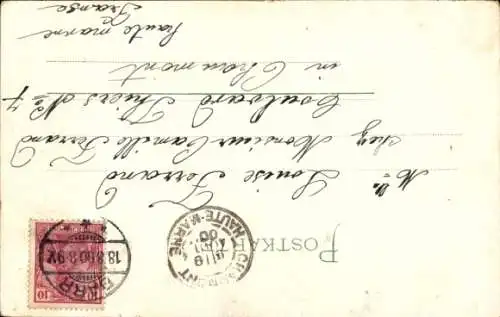 POSTKARTE
Mlle Louise Ferrand
chez Monsieur Camille Ferrand
Boulevard Thiers No 7
in Chaumont
haute marne
France
BARR
18.8.00.8-9V.
10
CHAUMONT
HAUTE-MARNE
00